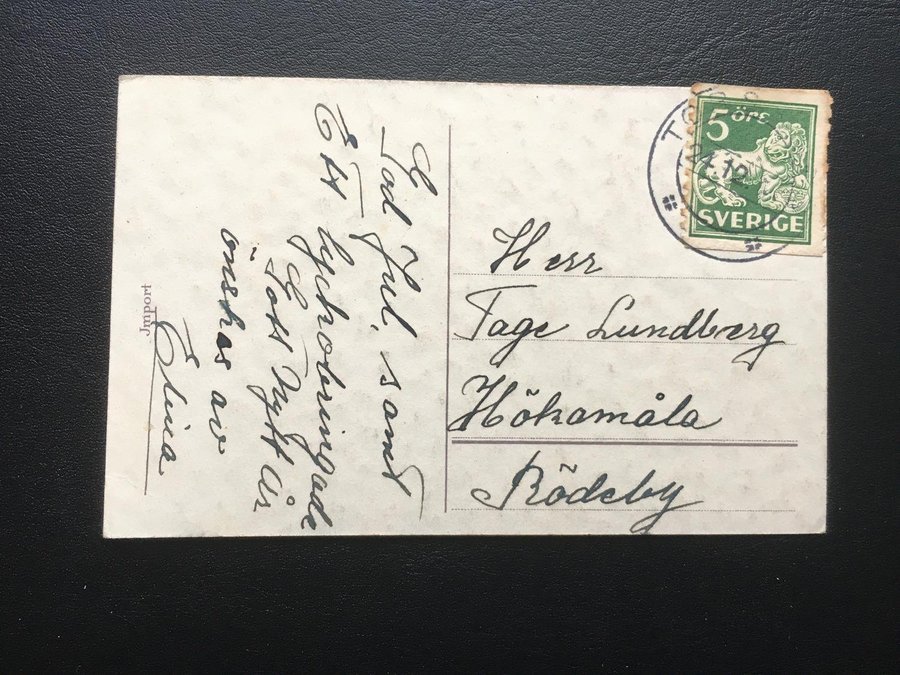 God Jul, samt
Ett lyckobringade
Gott Nytt År
önskas av
Elina
Jmport
5 ÖRE
SVERIGE
24.12
Herr
Tage Lundberg
Hökamåla
Rödeby